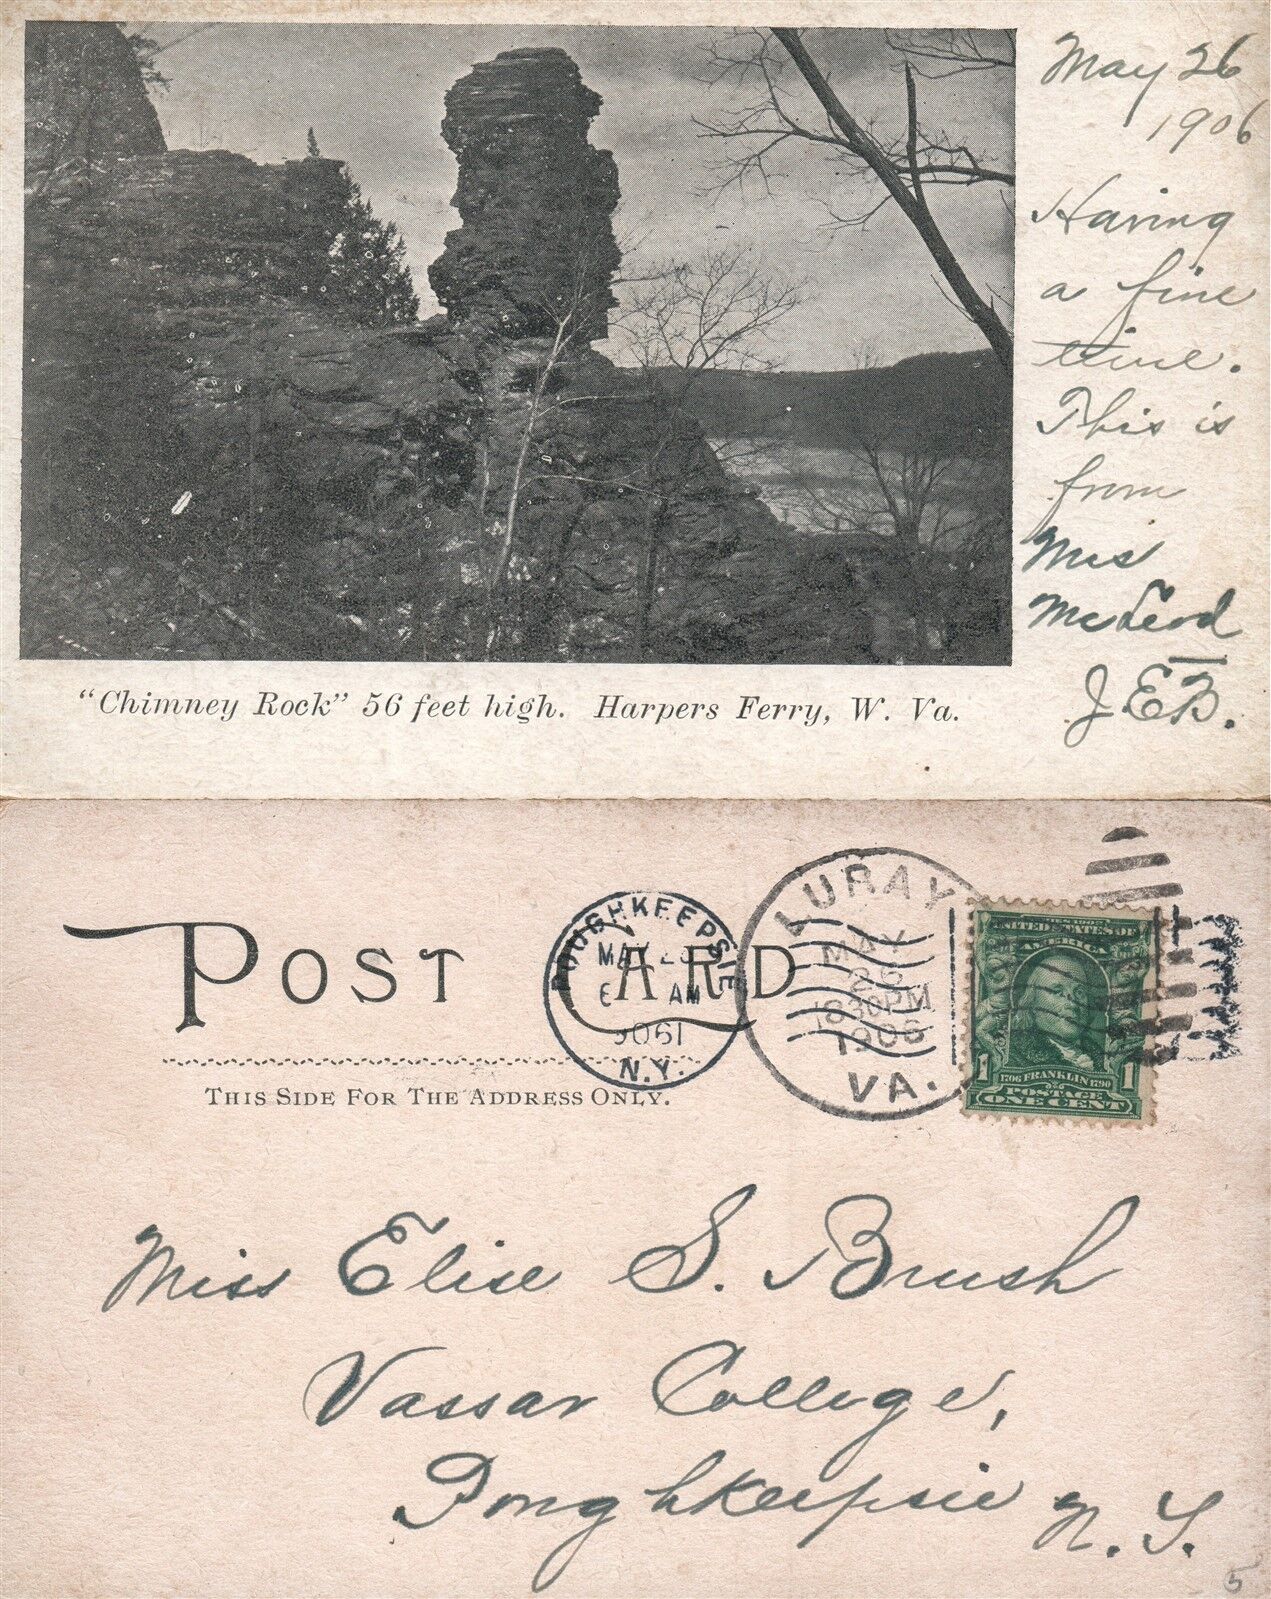 May 26
1906
Having
a fine
time.
This is
from
Mrs
McLeod
J.E.B.
"Chimney Rock" 56 feet high. Harpers Ferry, W. Va.
POST CARD
THIS SIDE FOR THE ADDRESS ONLY.
POUGHKEEPSIE
MAY
AM
N.Y.
LURAY
MAY
26
830PM
1906
VA.
SERIES 1902
UNITED STATES OF
AMERICA
1706 FRANKLIN 1790
1 POSTAGE 1
ONE CENT
Miss Elise S. Brush
Vassar College,
Poughkeepsie N.Y.
5